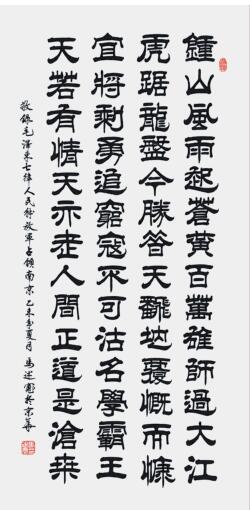 鍾山風雨起蒼黃百萬雄師過大江
虎踞龍盤今勝昔天飜地覆慨而慷
宜將剩勇追窮寇不可沽名學霸王
天若有情天亦老人間正道是滄桑
敬錄毛澤東七律人民解放軍占領南京乙未年夏月馬述於京華